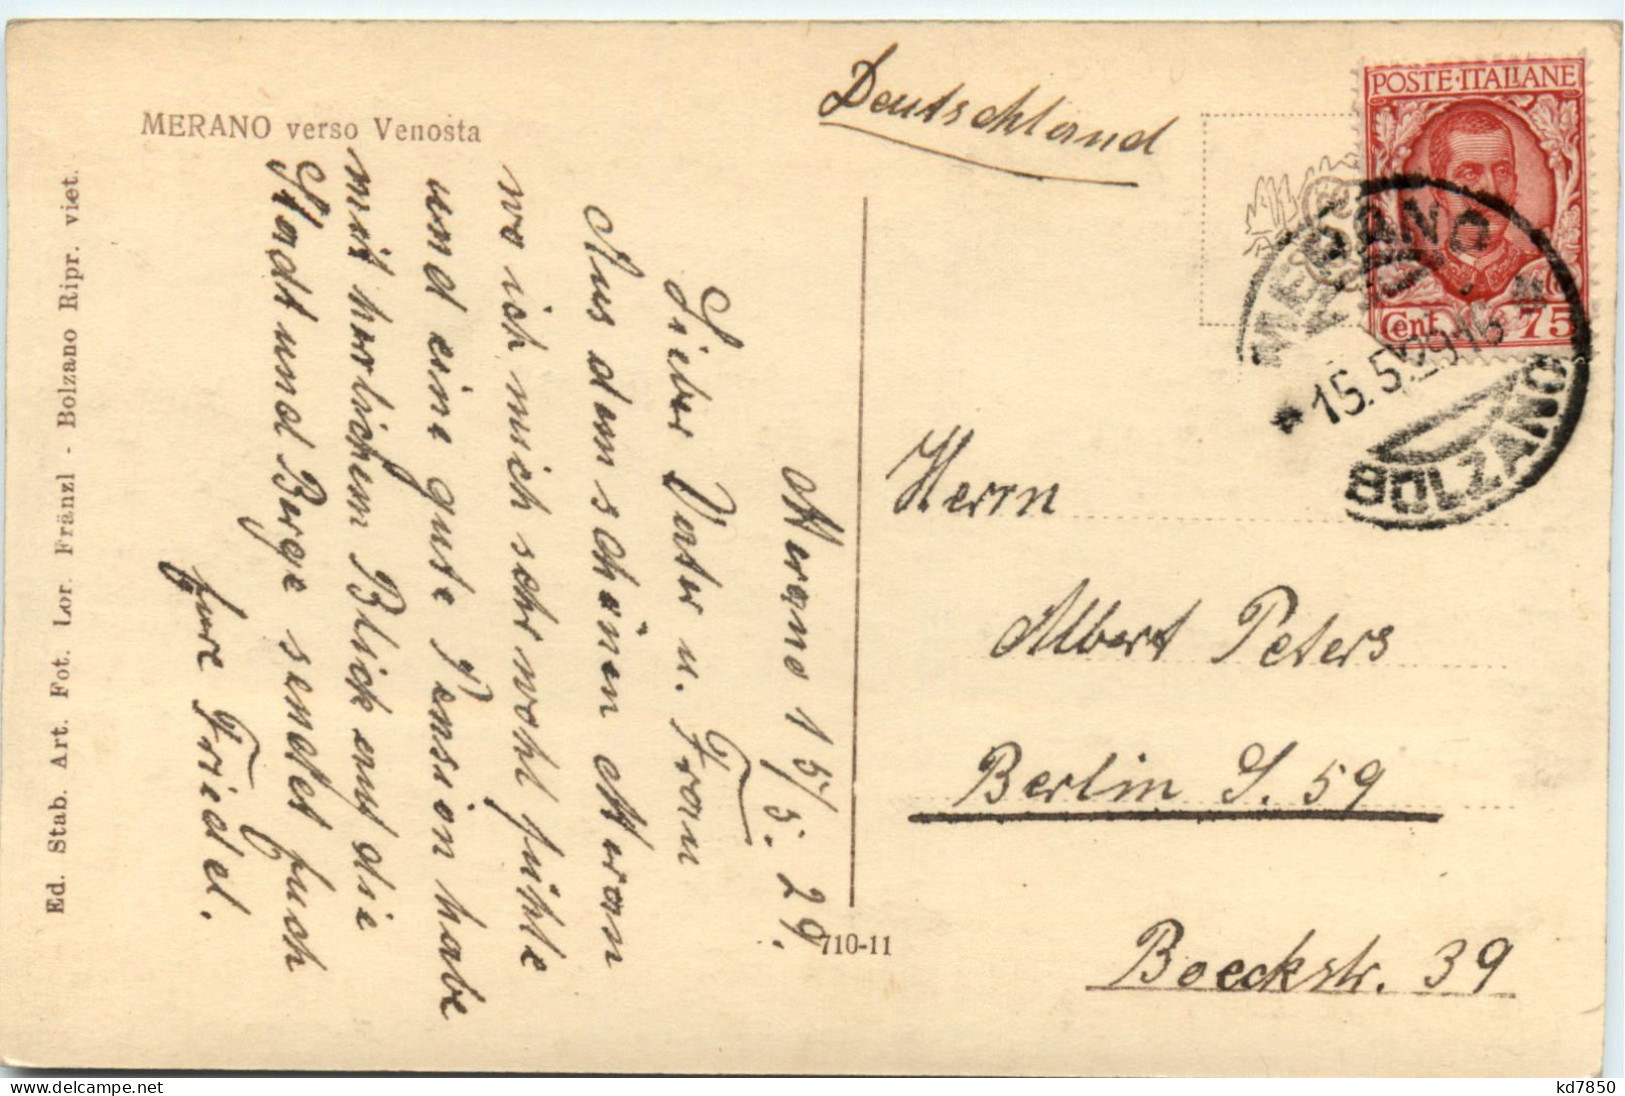 MERANO verso Venosta
Ed. Stab. Art. Fot. Lor. Fränzl - Bolzano Ripr. viet.
Merano 15/5. 29.
Lieber Vater u. Frau
Aus dem schönen Meran
wo ich mich sehr wohl fühle
und eine gute Pension habe
mit herlichem Blick auf die
Stadt und Berge sendet Euch
Eure Friedel.
710-11
Deutschland
POSTE·ITALIANE
Cent. 75
MERANO
15.5.29.16
BOLZANO
Herrn
Albert Peters
Berlin S. 59
Boeckstr. 39
delcampe.net
kd7850